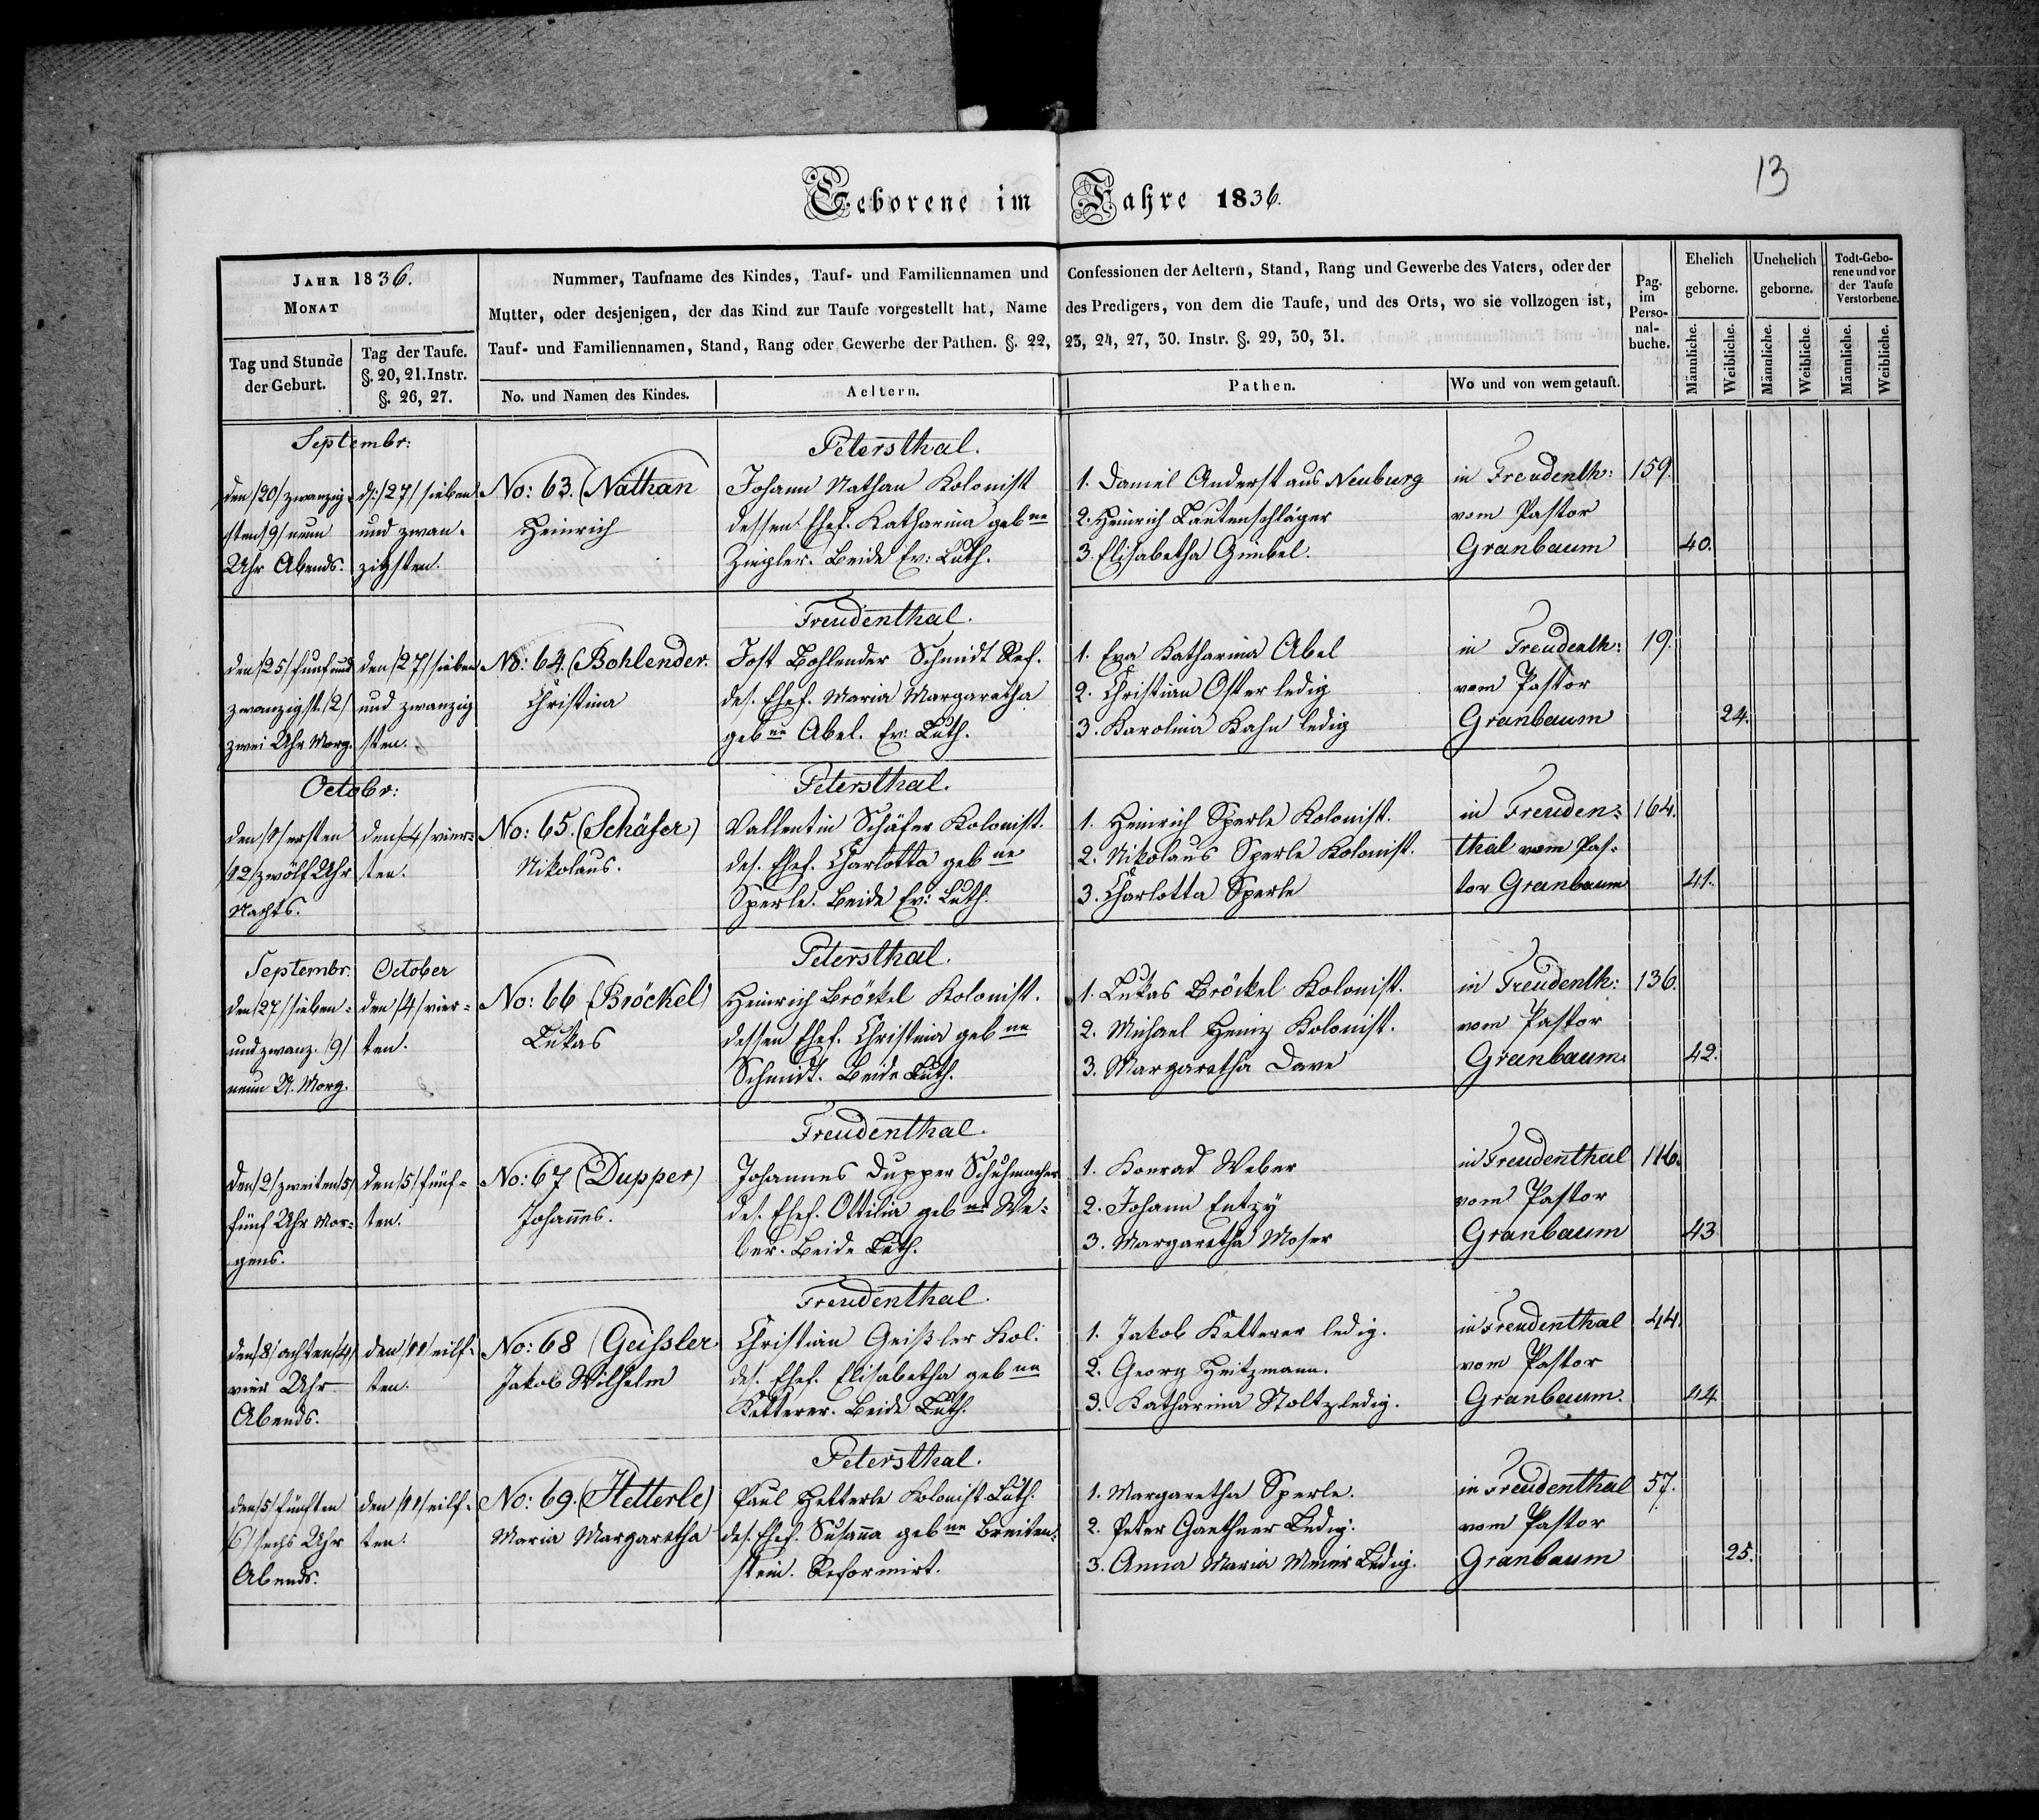 13
Geborene im Jahre 1836.
JAHR 1836.
MONAT
Tag und Stunde
der Geburt.
Tag der Taufe.
§. 20, 21. Instr.
§. 26, 27.
Nummer, Taufname des Kindes, Tauf- und Familiennamen und Confessionen der Aeltern, Stand, Rang und Gewerbe des Vaters, oder der
Mutter, oder desjenigen, der das Kind zur Taufe vorgestellt hat, Name des Predigers, von dem die Taufe, und des Orts, wo sie vollzogen ist,
Tauf- und Familiennamen, Stand, Rang oder Gewerbe der Pathen. §. 22, 23, 24, 27, 30. Instr. §. 29, 30, 31.
No. und Namen des Kindes.
Aeltern.
Pathen.
Wo und von wem getauft.
Pag.
im
Perso-
nal-
buche.
Ehelich
geborne.
Unehelich
geborne.
Todt-Gebo-
rene und vor
der Taufe
Verstorbene.
Männliche.
Weibliche.
Männliche.
Weibliche.
Männliche.
Weibliche.
Septembr:
den /20/ zwanzig-
sten /9/ neun
Uhr Abends.
d: /27/ sieben
und zwan-
zigsten.
No: 63. (Nathan
Heinrich
Petersthal.
Johann Nathan Kolonist
dessen Ehef. Katharina gebne
Ziegler. Beide Ev: Luth.
1. Daniel Anderst aus Neuburg
2. Heinrich Lautenschläger
3. Elisabetha Gimbel.
in Freudenth:
vom Pastor
Granbaum
159.
40.
den /25/ fünfund
zwanzigst. /2/
zwei Uhr Morg.
den /27/ sieben
und zwanzig
sten.
No: 64. (Bohlender.
Christina
Freudenthal.
Jost Bohlender Schmidt Ref.
des. Ehef. Maria Margaretha
gebne Abel. Ev: Luth.
1. Eva Katharina Abel
2. Christian Oster ledig
3. Karolina Kahn ledig
in Freudenth:
vom Pastor
Granbaum
19.
24.
Octobr:
den /1/ ersten
/12/ zwölf Uhr
Nachts.
den /4/ vier-
ten.
No: 65. (Schäfer)
Nikolaus.
Petersthal.
Vallentin Schäfer Kolonist.
des. Ehef. Charlotta gebne
Sperle. Beide Ev: Luth.
1. Heinrich Sperle Kolonist.
2. Nikolaus Sperle Kolonist.
3. Charlotta Sperle
in Freuden-
thal vom Pas-
tor Granbaum
164.
41.
Septembr.
den /27/ sieben-
und zwanz. /9/
neun U. Morg.
October
den /4/ vier-
ten.
No: 66 (Bröckel)
Lukas
Petersthal.
Heinrich Bröckel Kolonist.
dessen Ehef. Christina gebne
Schmidt. Beide Luth.
1. Lukas Bröckel Kolonist.
2. Michael Heinz Kolonist.
3. Margaretha Dave
in Freudenth:
vom Pastor
Granbaum.
136.
42.
den /2/ zweiten /5/
fünf Uhr Mor-
gens.
den /5/ fünf-
ten.
No: 67 (Dupper)
Johañes.
Freudenthal.
Johannes Dupper Schuhmacher
des. Ehef. Ottilia gebne We-
ber. Beide Luth.
1. Konrad Weber
2. Johann Entzy
3. Margaretha Moser
in Freudenthal
vom Pastor
Granbaum
116.
43.
den /8/ achten /4/
vier Uhr
Abends.
den /11/ eilf-
ten.
No: 68 (Geissler
Jakob Wilhelm
Freudenthal.
Christian Geißler Kol.
des. Ehef. Elisabetha gebne
Ketterer. Beide Luth.
1. Jakob Ketterer ledig.
2. Georg Heitzmann.
3. Katharina Stoltz ledig.
in Freudenthal
vom Pastor
Granbaum.
44.
44
den /5/ fünften
/6/ sechs Uhr
Abends.
den /11/ eilf-
ten.
No: 69. (Hetterle)
Maria Margaretha
Petersthal.
Paul Hetterle Kolonist Luth.
des. Ehef. Susaña gebne Breiten-
stein. Reformirt.
1. Margaretha Sperle.
2. Peter Gaethner Ledig.
3. Anna Maria Meier Ledig.
in Freudenthal
vom Pastor
Granbaum
57.
25.